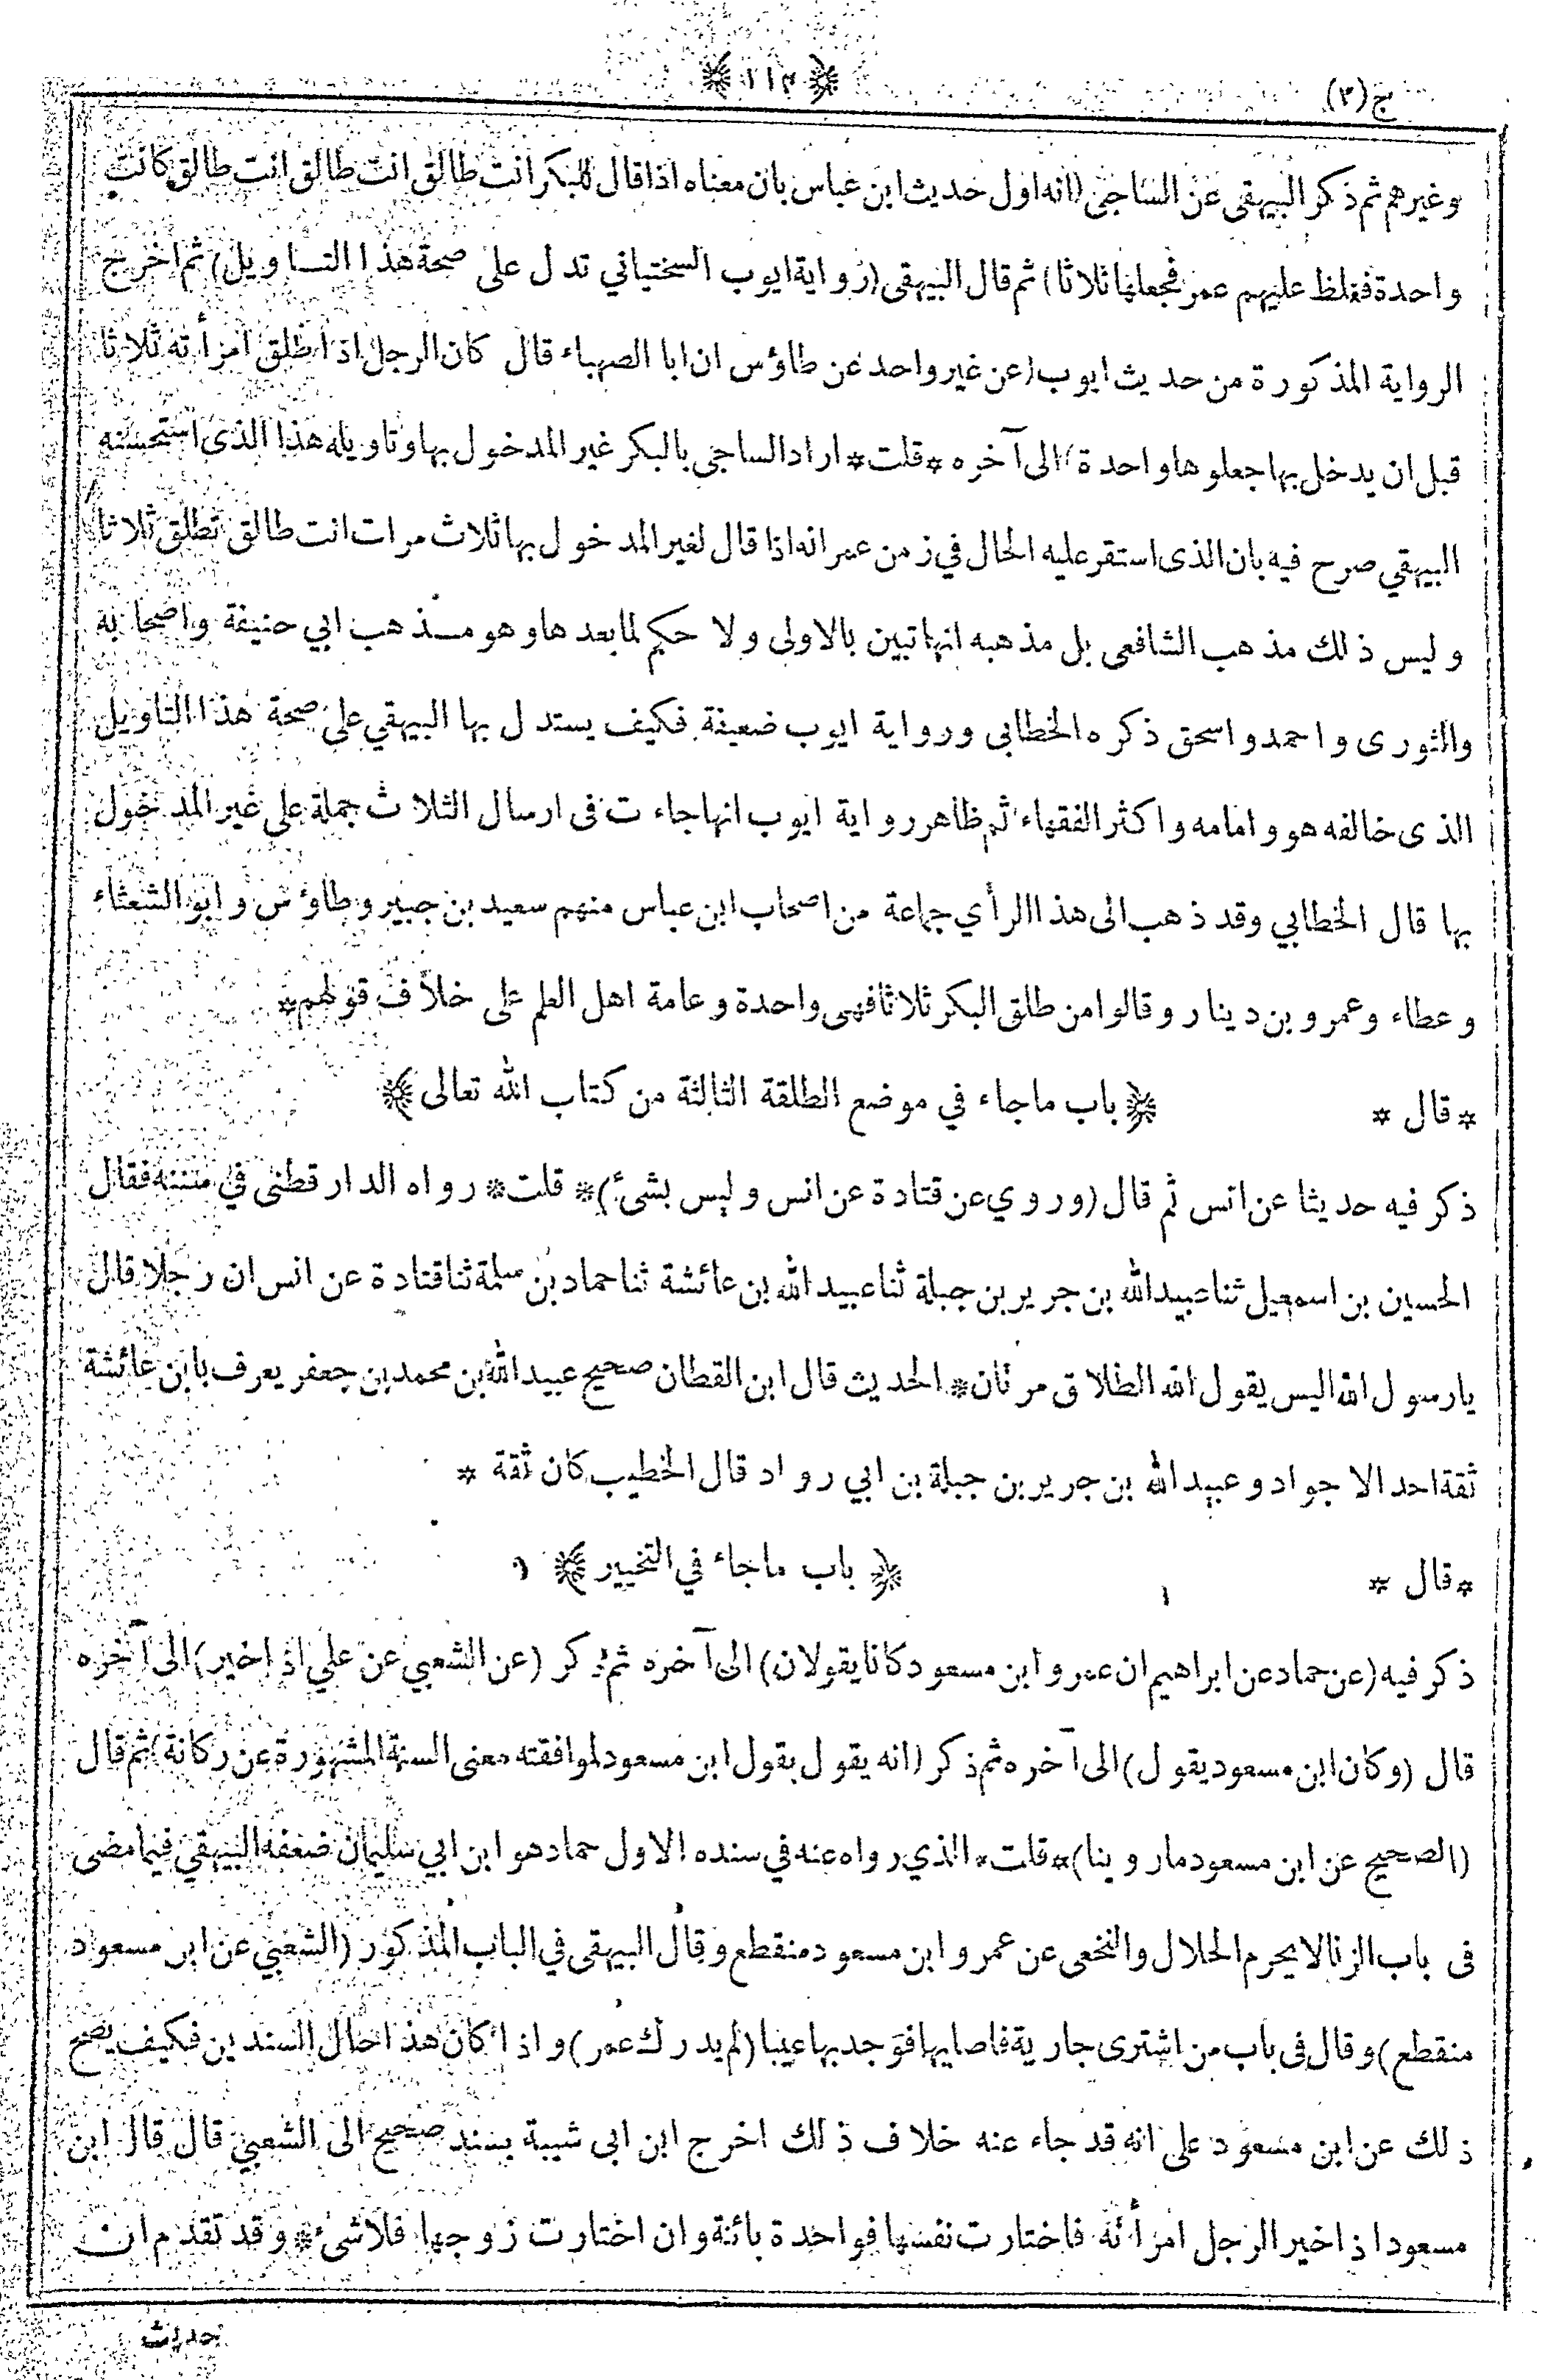 ﴿ ١١٣ ﴾
ج (٣)
وغيرهم ثم ذكر البيهقى عن الساجى (انه اول حديث ابن عباس بان معناه اذا قال للبكر انت طالق انت طالق انت طالق كانت
واحدة فغلظ عليهم عمر فجعلها ثلاثا) ثم قال البيهقى (رواية ايوب السختياني تدل على صحة هذا التاويل) ثم اخرج
الرواية المذكورة من حديث ايوب (عن غير واحد عن طاؤس ان ابا الصهباء قال كان الرجل اذا طلق امرأته ثلاثا
قبل ان يدخل بها جعلوها واحدة) الى آخره * قلت * اراد الساجى بالبكر غير المدخول بها وتاويله هذا الذى استحسنه
البيهقي صرح فيه بان الذى استقر عليه الحال في زمن عمر انه اذا قال لغير المدخول بها ثلاث مرات انت طالق تطلق ثلاثا
وليس ذلك مذهب الشافعى بل مذهبه انها تبين بالاولى ولا حكم لما بعدها وهو مذهب ابي حنيفة واصحابه
والثورى واحمد واسحق ذكره الخطابى ورواية ايوب ضعيفة فكيف يستدل بها البيهقي على صحة هذا التاويل
الذى خالفه هو وامامه واكثر الفقهاء ثم ظاهر رواية ايوب انها جاءت فى ارسال الثلاث جملة على غير المدخول
بها قال الخطابي وقد ذهب الى هذا الرأي جماعة من اصحاب ابن عباس منهم سعيد بن جبير وطاؤس وابو الشعثاء
وعطاء وعمرو بن دينار وقالوا من طلق البكر ثلاثا فهى واحدة وعامة اهل العلم على خلاف قولهم *
* قال * ﴿ باب ماجاء في موضع الطلقة الثالثة من كتاب الله تعالى ﴾
ذكر فيه حديثا عن انس ثم قال (وروي عن قتادة عن انس وليس بشىء) * قلت * رواه الدارقطنى في سننه فقال
الحسين بن اسمعيل ثنا عبيدالله بن جرير بن جبلة ثنا عبيدالله بن عائشة ثنا حماد بن سلمة ثنا قتادة عن انس ان رجلا قال
يارسول الله اليس يقول الله الطلاق مرتان * الحديث قال ابن القطان صحيح عبيدالله بن محمد بن جعفر يعرف بابن عائشة
ثقة احد الاجواد وعبيدالله بن جرير بن جبلة بن ابي رواد قال الخطيب كان ثقة *
* قال * ﴿ باب ماجاء في التخيير ﴾
ذكر فيه (عن حماد عن ابراهيم ان عمر وابن مسعود كانا يقولان) الى آخره ثم ذكر (عن الشعبي عن علي اذ اخير) الى آخره
قال (وكان ابن مسعود يقول) الى آخره ثم ذكر (انه يقول بقول ابن مسعود لموافقته معنى السنة المشهورة عن ركانة) ثم قال
(الصحيح عن ابن مسعود ماروينا) * قلت * الذي رواه عنه في سنده الاول حماد هو ابن ابي سليمان ضعفه البيهقي فيما مضى
فى باب الزنا لا يحرم الحلال والنخعى عن عمر وابن مسعود منقطع وقال البيهقى في الباب المذكور (الشعبي عن ابن مسعود
منقطع) وقال فى باب من اشترى جارية فاصابها فوجد بها عيبا (لم يدرك عمر) واذا كان هذا حال السندين فكيف يصح
ذلك عن ابن مسعود على انه قد جاء عنه خلاف ذلك اخرج ابن ابى شيبة بسند صحيح الى الشعبي قال قال ابن
مسعود اذ اخير الرجل امرأته فاختارت نفسها فواحدة بائنة وان اختارت زوجها فلا شىء * وقد تقدم ان
حديث